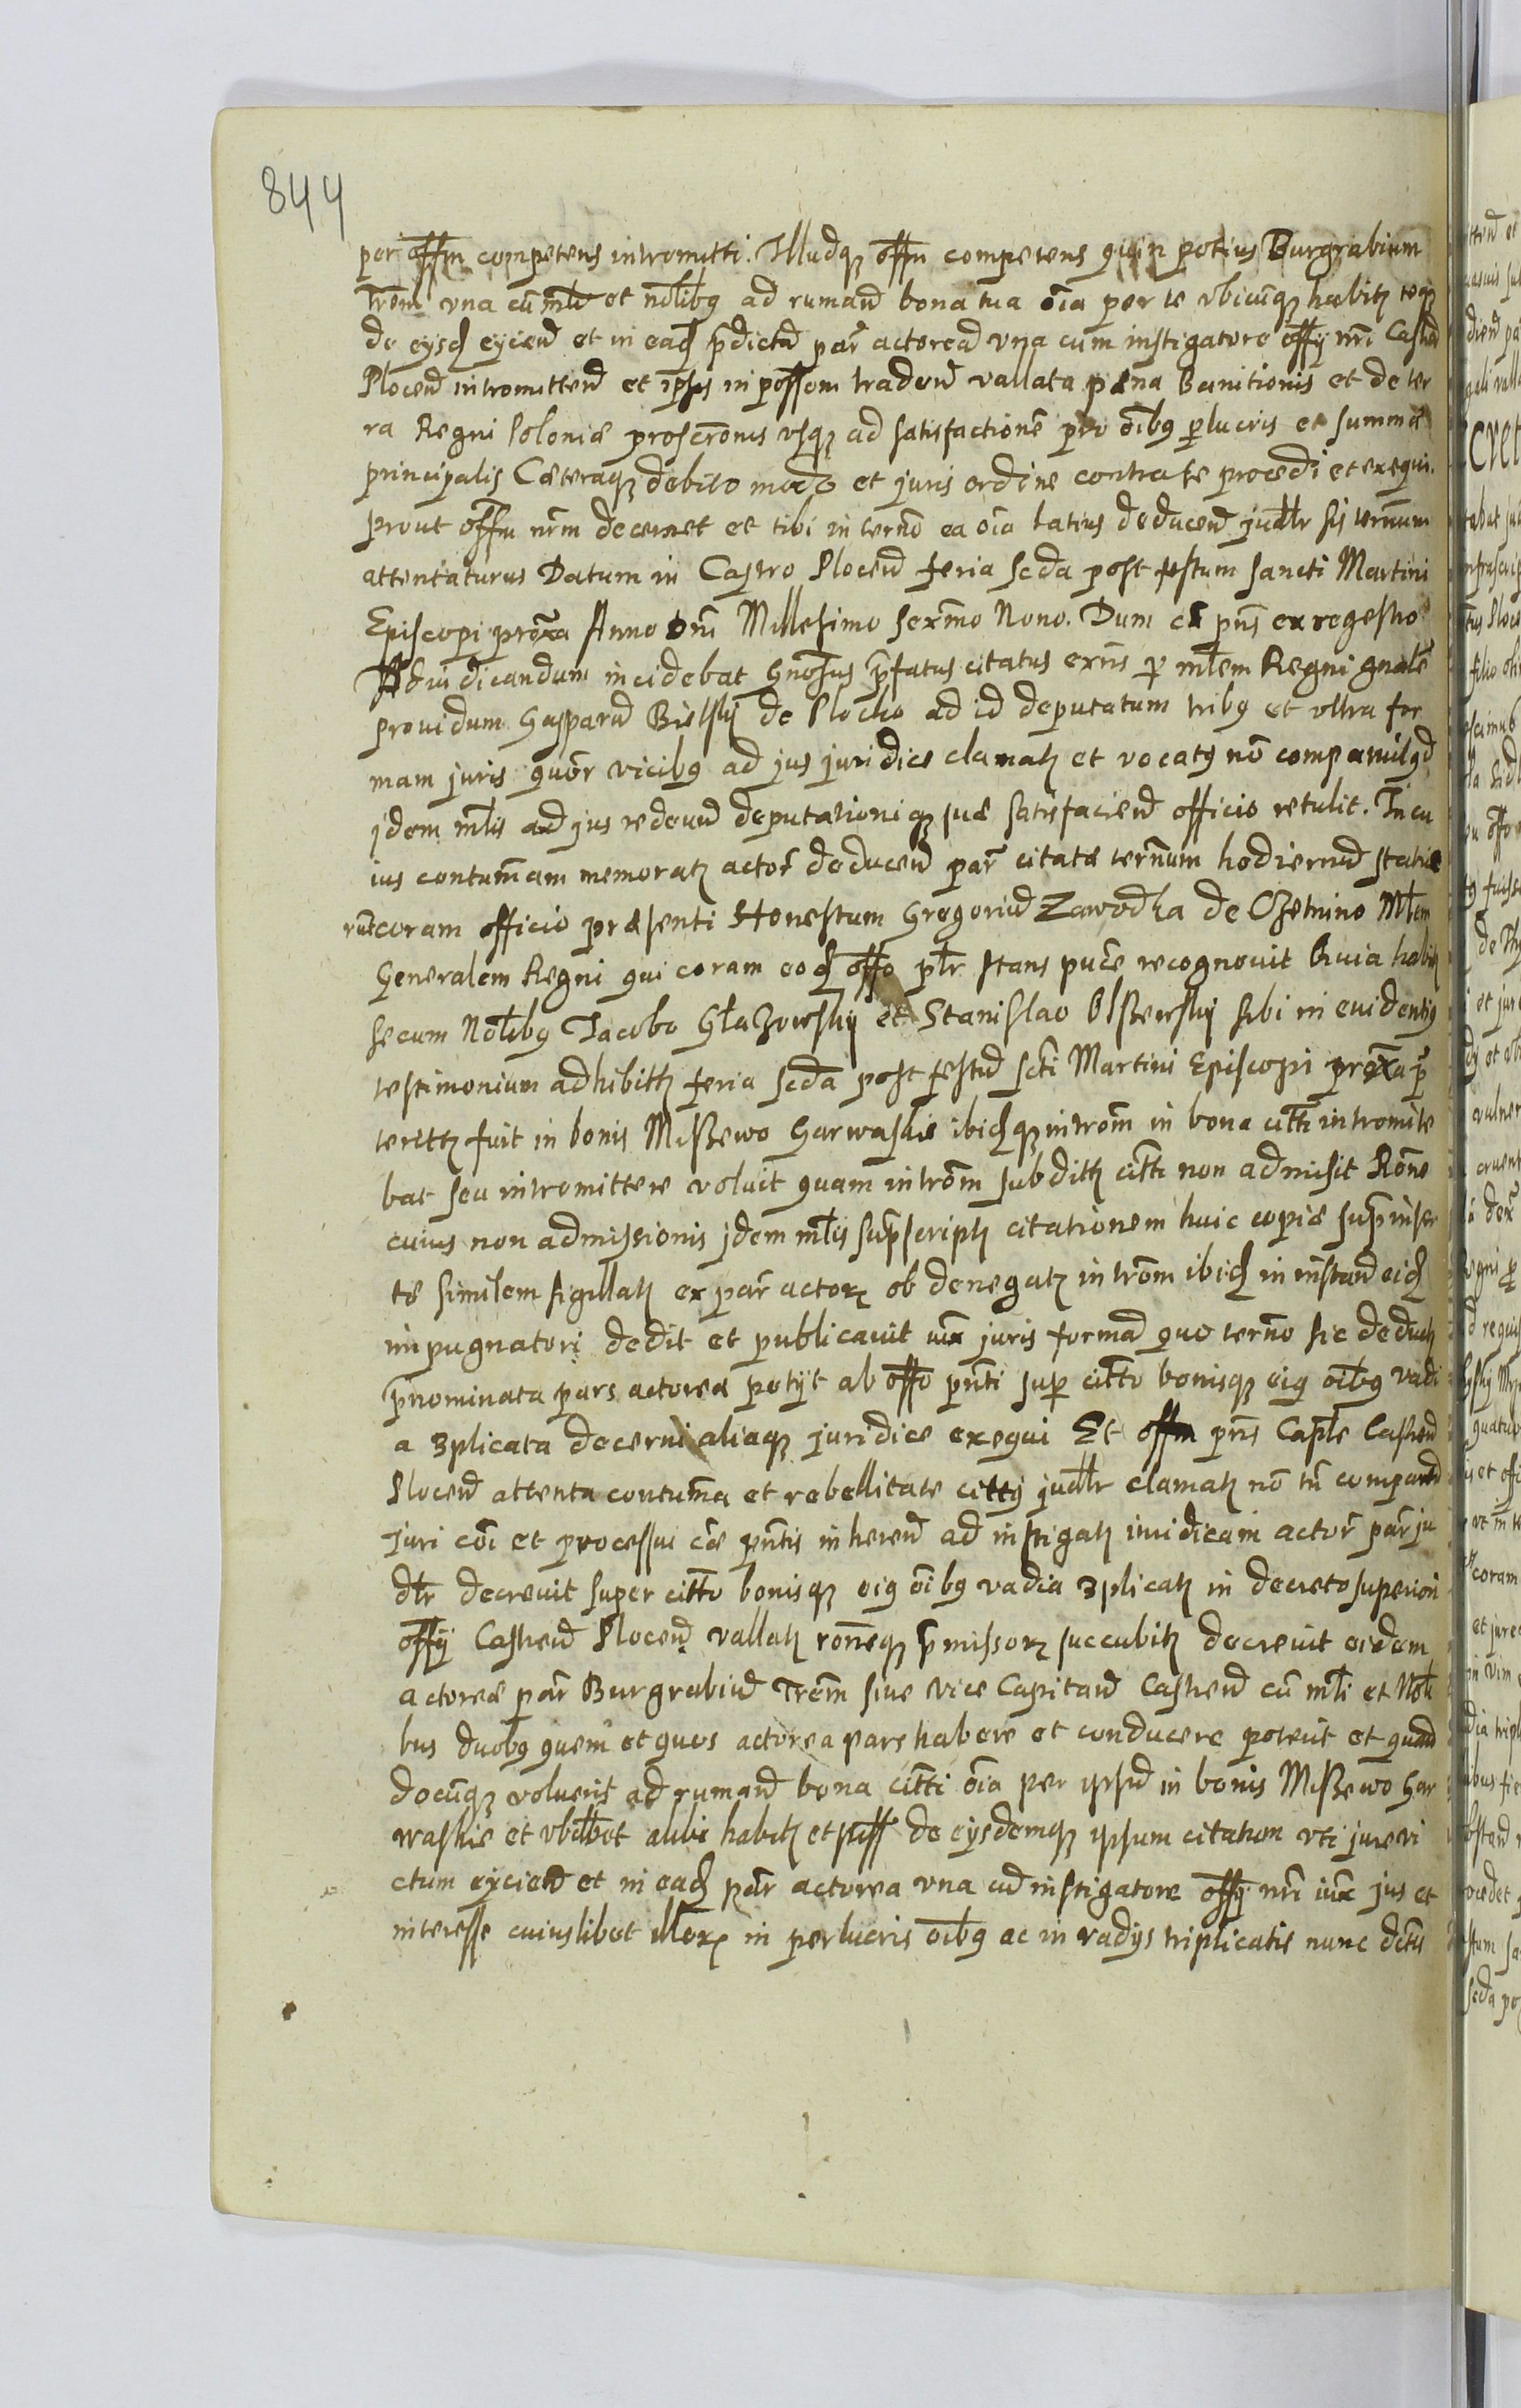 844
per offm competens intromitti. Illudq offm competens quin potius Burgrabium
Trem vna cũ mli et nolibq ad rumand bona tua oia per te vbicunq habitz teq
de eysd eyiciend et in ead pdicta par actorea vna cum instigatore offy nri Castren
Plocen intromittend et ipsis in possom tradend vallata pæna Banitionis et de ter
ra Regni Poloniæ proscronis vsq ad satisfactionē pro oibq perlucris et summæ
principalis Cæteraq debito modo et juris ordine contra te procedi et exequi.
prout offm nrm decernet et tibi in termo ea oia latius deducend judlr sis termum
attentaturus Datum in Castro Plocen feria scda post festum sancti Martini
Episcopi proxa Anno Dni Millesimo Sexmo Nono. Dum ca pns ex regestro
Adiudicandum incidebat Gnosus pfatus citatus exns p mlem Regni gnale
prouidum Gasparum Bielsky de Plocko ad id deputatum tribq et vltra for
mam juris quor vicibq ad jus juridice clamatz et vocatq nō comparuit qd
jdem mlis ad jus redeund deputationiq suæ satisfaciend officio retulit. In cu
ius contumam memoratz actor deducend par citatæ termum hodiernū statue
runt coram officio præsenti Honestum Gregoriū Zawodka de Czetnino Mlem
Generalem Regni qui coram eod offo plr stans puce recognouit Quia habitz
secum Nolibq Jacobo Głazowsky et Stanislao Olszewsky sibi in euidentiq
testimonium adhibitz feria scda post festū scti Martini Episcopi proxa p
teritz fuit in bonis Miszewo Garwaskie ibidq introm in bona citti intromite
bat seu intromittere voluit quam introm subditz citti non admisit Rone
cuius non admissionis jdem mlis suprascriptz citationem huic copiæ supinser
tæ similem sigillatz ex par actorz ob denegatz introm ibid in instand eid
impugnatori dedit et publicauit iux juris formā quo termo sic deductz
pnominata pars actorea petijt ab offo pnti sup citto bonisq eiq oibq vadi
a 3plicata decerni aliaq juridice exequi Et offm pns Caple Castren
Plocen attenta contuma et rebellitate cittq judlr clamatz nō tn comparend
Juri coi et processui cæ pntis inherend ad instigatz iuridicam actor par ju
dlr decreuit super citto bonisq eiq oibq vadia 3plicatz in decreto superiori
offy Castren Plocen vallatz roneq pmissorz succubitz decreuit eidem
actoreæ par Burgrabiū Trem siue Vice Capitan Castren cū mli et Noli
bus duobq quem et quos actorea pars habere et conducere poterit et quan
docunq voluerit ad rumand bona citti oia per ipsū in bonis Miszewo Gar
waskie et vbilbet alibi habitz et poss de eysdemq ipsum citatum vti jure vi
ctum eyciend et in ead par actorea vna cū instigatore offy nri iux jus et
interesse cuiuslibet illorz in perlucris oibq ac in vadys triplicatis nunc dctu